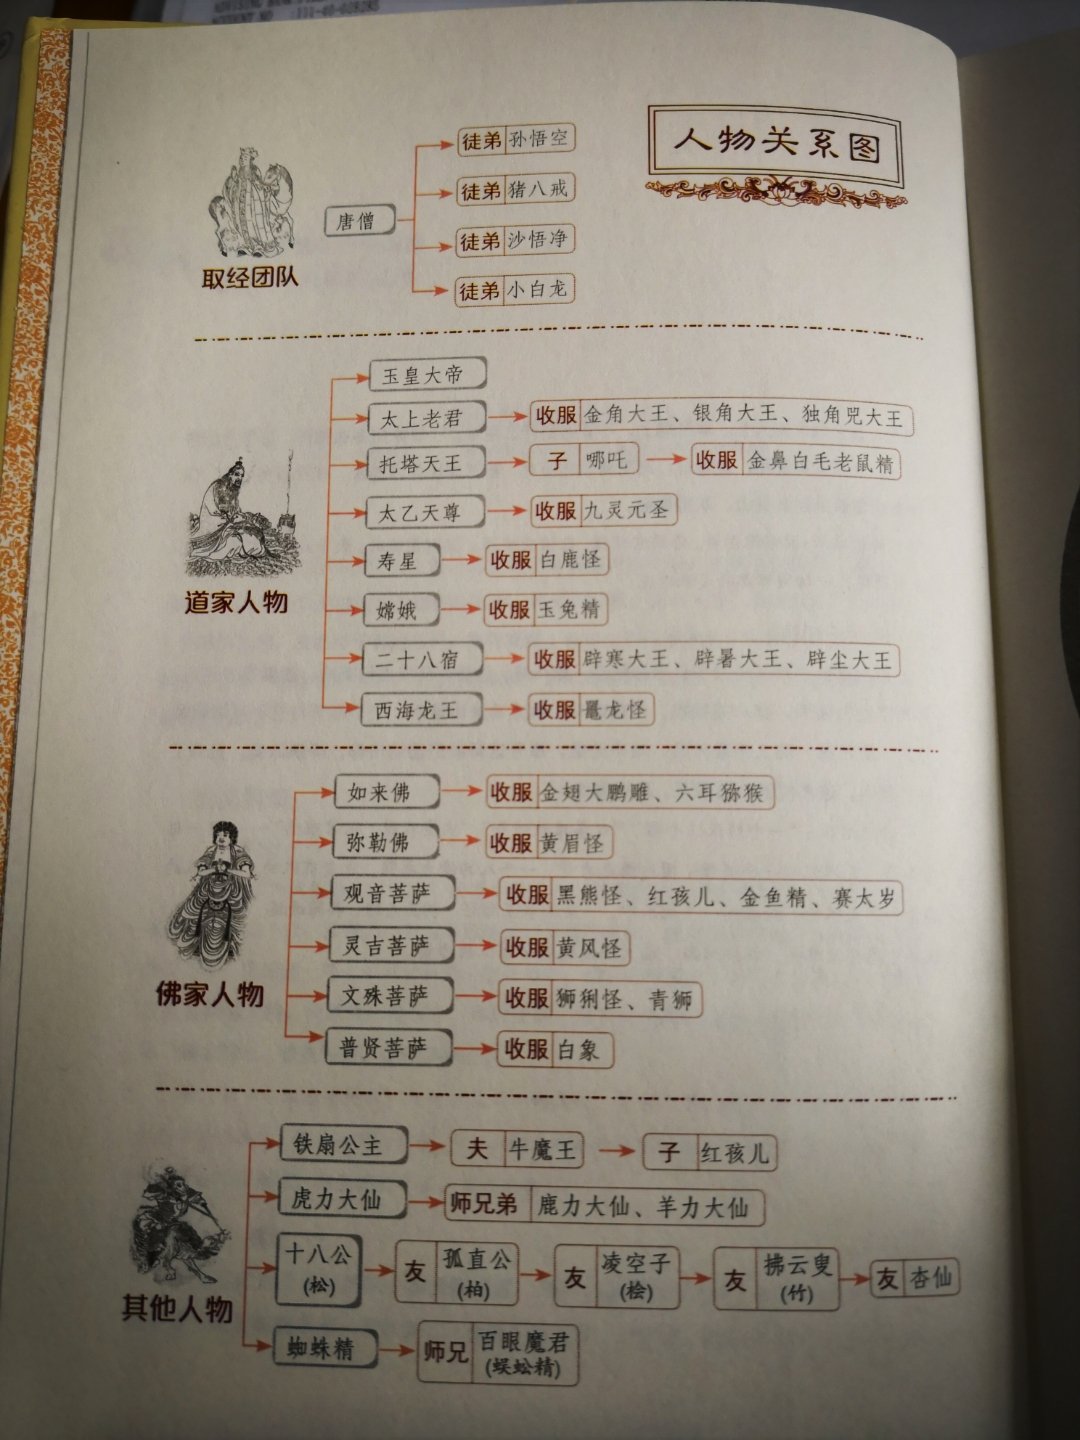 :111-40-028285
人物关系图
徒弟 孙悟空
徒弟 猪八戒
唐僧
徒弟 沙悟净
取经团队
徒弟 小白龙
玉皇大帝
太上老君 收服 金角大王、银角大王、独角兕大王
托塔天王 子 哪吒 收服 金鼻白毛老鼠精
太乙天尊 收服 九灵元圣
寿星 收服 白鹿怪
道家人物
嫦娥 收服 玉兔精
二十八宿 收服 辟寒大王、辟暑大王、辟尘大王
西海龙王 收服 鼍龙怪
如来佛 收服 金翅大鹏雕、六耳猕猴
弥勒佛 收服 黄眉怪
观音菩萨 收服 黑熊怪、红孩儿、金鱼精、赛太岁
灵吉菩萨 收服 黄风怪
佛家人物
文殊菩萨 收服 狮猁怪、青狮
普贤菩萨 收服 白象
铁扇公主 夫 牛魔王 子 红孩儿
虎力大仙 师兄弟 鹿力大仙、羊力大仙
十八公 友 孤直公 友 凌空子 友 拂云叟 友 杏仙
(松) (柏) (桧) (竹)
其他人物
蜘蛛精 师兄 百眼魔君
(蜈蚣精)